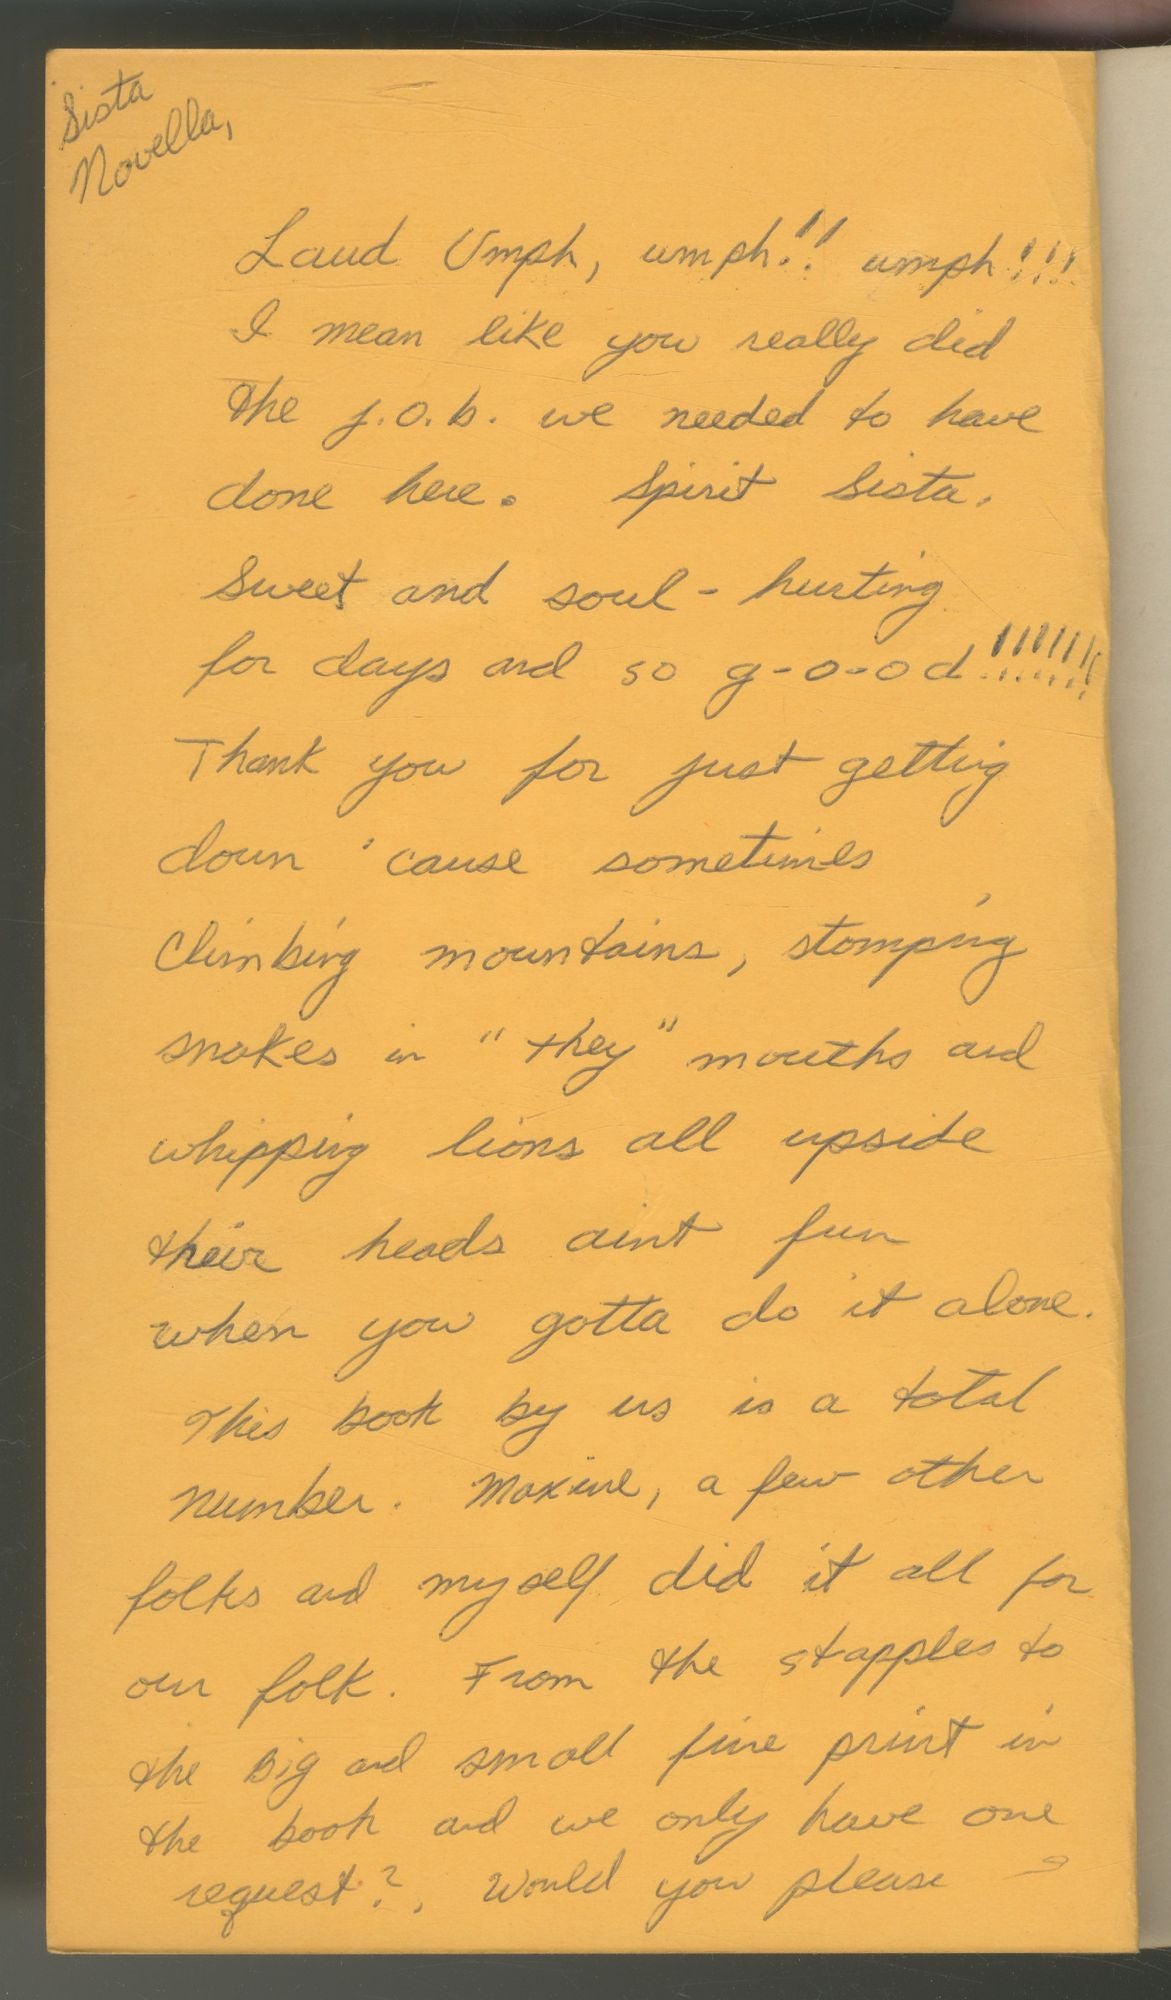 Sista
Novella,
Laud Umph, umph!! umph!!!
I mean like you really did
the j.o.b. we needed to have
done here. Spirit Sista.
Sweet and soul-hurting
for days and so g-o-o-d!!!!!!!
Thank you for just getting
down 'cause sometimes
Climbing mountains, stomping
snakes in "they" mouths and
whipping lions all upside
their heads aint fun
when you gotta do it alone.
This book by us is a total
number. Maxine, a few other
folks and myself did it all for
our folk. From the stapples to
the Big and small fine print in
the book and we only have one
request?, Would you please